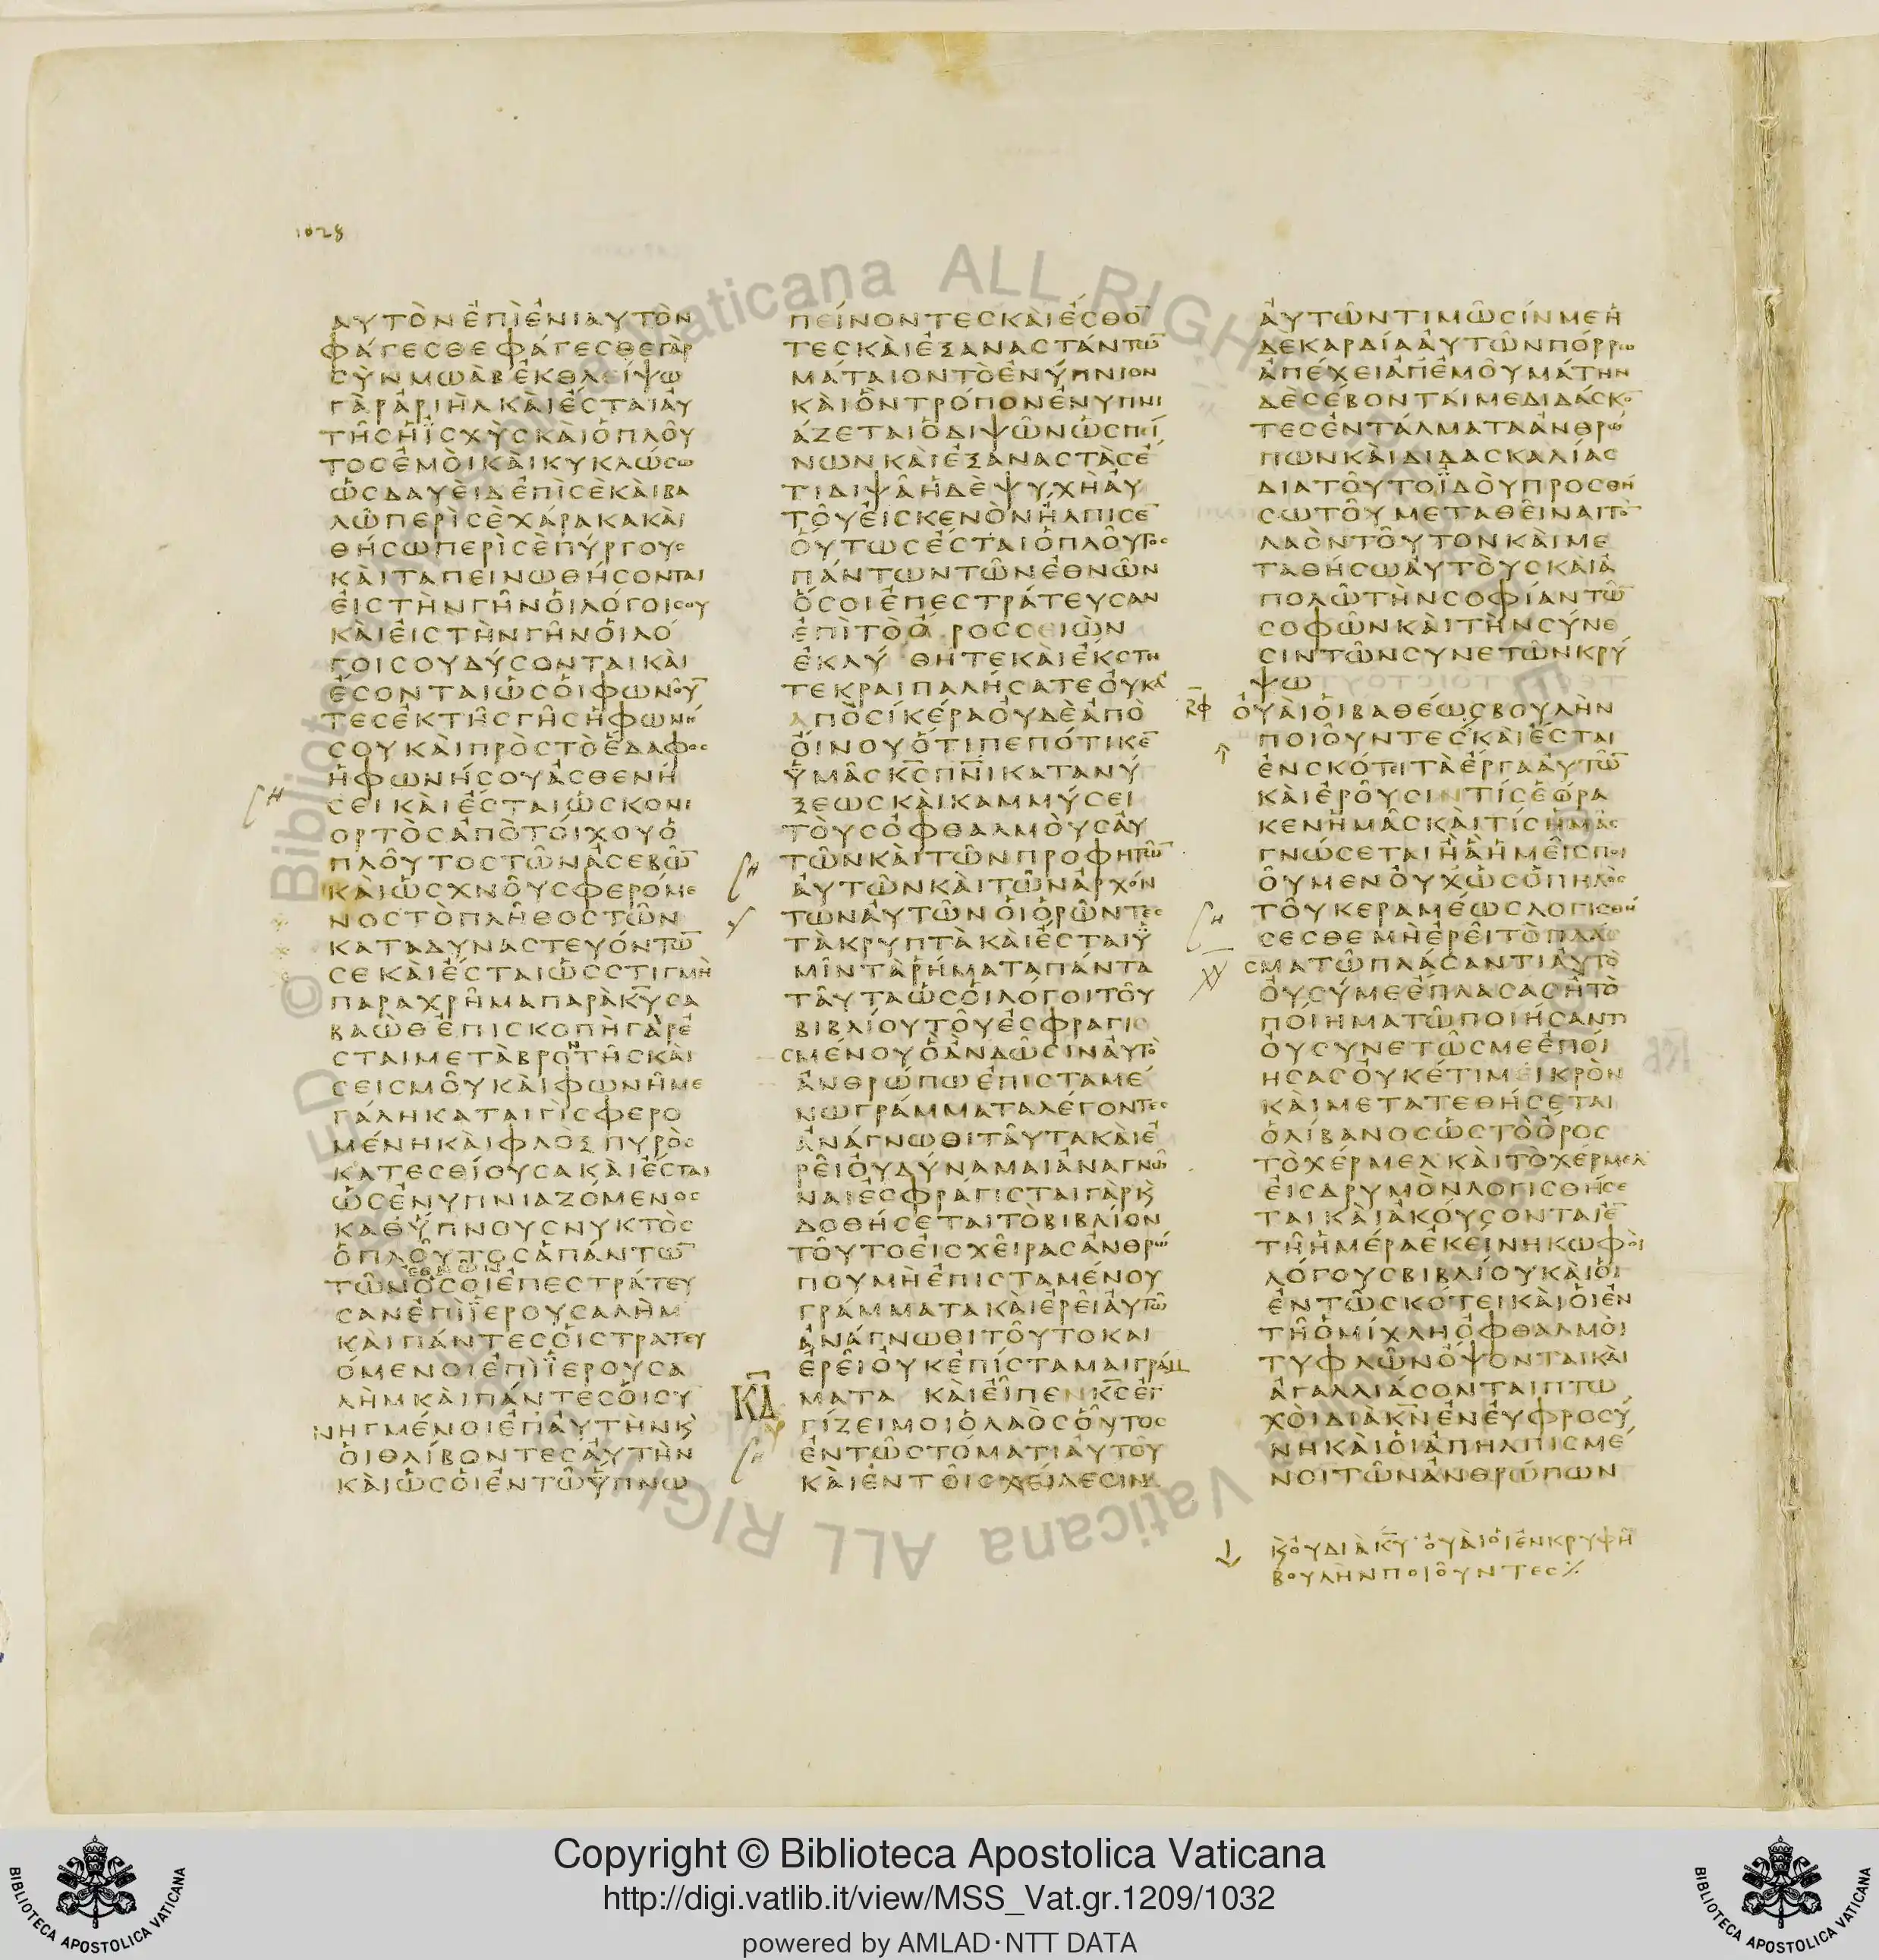 1028
ΑΥΤΟΝΕΠΙΕΝΙΑΥΤΟΝ
ΦΑΓΕΣΘΕΦΑΓΕΣΘΕΓΑΡ
ΣΥΝΜΩΑΒΕΚΘΛΕΙΨΩ
ΓΑΡΑΡΙΗΛΚΑΙΕΣΤΑΙΑΥ
ΤΗΣΗΙΣΧΥΣΚΑΙΟΠΛΟΥ
ΤΟΣΕΜΟΙΚΑΙΚΥΚΛΩΣΩ
ΩΣΔΑΥΕΙΔΕΠΙΣΕΚΑΙΒΑ
ΛΩΠΕΡΙΣΕΧΑΡΑΚΑΚΑΙ
ΘΗΣΩΠΕΡΙΣΕΠΥΡΓΟΥΣ
ΚΑΙΤΑΠΕΙΝΩΘΗΣΟΝΤΑΙ
ΕΙΣΤΗΝΓΗΝΟΙΛΟΓΟΙΣΟΥ
ΚΑΙΕΙΣΤΗΝΓΗΝΟΙΛΟ
ΓΟΙΣΟΥΔΥΣΟΝΤΑΙΚΑΙ
ΕΣΟΝΤΑΙΩΣΟΙΦΩΝΟΥ̅
ΤΕΣΕΚΤΗΣΓΗΣΗΦΩΝΗ
ΣΟΥΚΑΙΠΡΟΣΤΟΕΔΑΦΟΣ
ΗΦΩΝΗΣΟΥΑΣΘΕΝΗ
ΣΕΙΚΑΙΕΣΤΑΙΩΣΚΟΝΙ
ΟΡΤΟΣΑΠΟΤΟΙΧΟΥΟ
ΠΛΟΥΤΟΣΤΩΝΑΣΕΒΩ̅
ΚΑΙΩΣΧΝΟΥΣΦΕΡΟΜΕ
ΝΟΣΤΟΠΛΗΘΟΣΤΩΝ
ΚΑΤΑΔΥΝΑΣΤΕΥΟΝΤΩ̅
ΣΕΚΑΙΕΣΤΑΙΩΣΣΤΙΓΜΗ
ΠΑΡΑΧΡΗΜΑΠΑΡΑΚ̅Υ̅ΣΑ
ΒΑΩΘΕΠΙΣΚΟΠΗΓΑΡΕ
ΣΤΑΙΜΕΤΑΒΡΟΝΤΗΣΚΑΙ
ΣΕΙΣΜΟΥΚΑΙΦΩΝΗΜΕ
ΓΑΛΗΚΑΤΑΙΓΙΣΦΕΡΟ
ΜΕΝΗΚΑΙΦΛΟΞΠΥΡΟΣ
ΚΑΤΕΣΘΙΟΥΣΑΚΑΙΕΣΤΑΙ
ΩΣΕΝΥΠΝΙΑΖΟΜΕΝΟΣ
ΚΑΘΥΠΝΟΥΣΝΥΚΤΟΣ
ΟΠΛΟΥΤΟΣΑΠΑΝΤΩ̅
ΤΩΝΕΘΝΩΝΟΣΟΙΕΠΕΣΤΡΑΤΕΥ
ΣΑΝΕΠΙΙΕΡΟΥΣΑΛΗΜ
ΚΑΙΠΑΝΤΕΣΟΙΣΤΡΑΤΕΥ
ΟΜΕΝΟΙΕΠΙΙΕΡΟΥΣΑ
ΛΗΜΚΑΙΠΑΝΤΕΣΟΙΣΥ
ΝΗΓΜΕΝΟΙΕΠΑΥΤΗΝΚϚ
ΟΙΘΛΙΒΟΝΤΕΣΑΥΤΗΝ
ΚΑΙΩΣΟΙΕΝΤΩΥΠΝΩ
ΠΕΙΝΟΝΤΕΣΚΑΙΕΣΘΟ̅
ΤΕΣΚΑΙΕΞΑΝΑΣΤΑΝΤΩ̅
ΜΑΤΑΙΟΝΤΟΕΝΥΠΝΙΟΝ
ΚΑΙΟΝΤΡΟΠΟΝΕΝΥΠΝΙ
ΑΖΕΤΑΙΟΔΙΨΩΝΩΣΠΕΙ
ΝΩΝΚΑΙΕΞΑΝΑΣΤΑΣΕ
ΤΙΔΙΨΑΗΔΕΨΥΧΗΑΥ
ΤΟΥΕΙΣΚΕΝΟΝΗΛΠΙΣΕ̅
ΟΥΤΩΣΕΣΤΑΙΟΠΛΟΥΤΟΣ
ΠΑΝΤΩΝΤΩΝΕΘΝΩΝ
ΟΣΟΙΕΠΕΣΤΡΑΤΕΥΣΑΝ
ΕΠΙΤΟΟΡΟΣΣΕΙΩΝ
ΕΚΛΥΘΗΤΕΚΑΙΕΚΣΤΗ
ΤΕΚΡΑΙΠΑΛΗΣΑΤΕΟΥΚΑ
ΑΠΟΣΙΚΕΡΑΟΥΔΕΑΠΟ
ΟΙΝΟΥΟΤΙΠΕΠΟΤΙΚΕ̅
ΥΜΑΣΚ̅Σ̅Π̅Ν̅ΙΚΑΤΑΝΥ
ΞΕΩΣΚΑΙΚΑΜΜΥΣΕΙ
ΤΟΥΣΟΦΘΑΛΜΟΥΣΑΥ
ΤΩΝΚΑΙΤΩΝΠΡΟΦΗΤΩ̅
ΑΥΤΩΝΚΑΙΤΩΝΑΡΧΟΝ
ΤΩΝΑΥΤΩΝΟΙΟΡΩΝΤΕΣ
ΤΑΚΡΥΠΤΑΚΑΙΕΣΤΑΙΥ
ΜΙΝΤΑΡΗΜΑΤΑΠΑΝΤΑ
ΤΑΥΤΑΩΣΟΙΛΟΓΟΙΤΟΥ
ΒΙΒΛΙΟΥΤΟΥΕΣΦΡΑΓΙ
ΣΜΕΝΟΥΟΑΝΔΩΣΙΝΑΥΤΟ
ΑΝΘΡΩΠΩΕΠΙΣΤΑΜΕ
ΝΩΓΡΑΜΜΑΤΑΛΕΓΟΝΤΕΣ
ΑΝΑΓΝΩΘΙΤΑΥΤΑΚΑΙΕ
ΡΕΙΟΥΔΥΝΑΜΑΙΑΝΑΓΝΩ
ΝΑΙΕΣΦΡΑΓΙΣΤΑΙΓΑΡΚϚ
ΔΟΘΗΣΕΤΑΙΤΟΒΙΒΛΙΟΝ
ΤΟΥΤΟΕΙΣΧΕΙΡΑΣΑΝΘΡΩ
ΠΟΥΜΗΕΠΙΣΤΑΜΕΝΟΥ
ΓΡΑΜΜΑΤΑΚΑΙΕΡΕΙΑΥΤΩ
ΑΝΑΓΝΩΘΙΤΟΥΤΟΚΑΙ
ΕΡΕΙΟΥΚΕΠΙΣΤΑΜΑΙΓΡΑΜ
ΚΔ̅ ΜΑΤΑ ΚΑΙΕΙΠΕΝΚ̅Σ̅ΕΓ
ΓΙΖΕΙΜΟΙΟΛΑΟΣΟΥΤΟΣ
ΕΝΤΩΣΤΟΜΑΤΙΑΥΤΟΥ
ΚΑΙΕΝΤΟΙΣΧΕΙΛΕΣΙΝ
ΑΥΤΩΝΤΙΜΩΣΙΝΜΕΗ
ΔΕΚΑΡΔΙΑΑΥΤΩΝΠΟΡΡΩ
ΑΠΕΧΕΙΑΠΕΜΟΥΜΑΤΗΝ
ΔΕΣΕΒΟΝΤΑΙΜΕΔΙΔΑΣΚΟ̅
ΤΕΣΕΝΤΑΛΜΑΤΑΑΝΘΡΩ
ΠΩΝΚΑΙΔΙΔΑΣΚΑΛΙΑΣ
ΔΙΑΤΟΥΤΟΙΔΟΥΠΡΟΣΘΗ
ΣΩΤΟΥΜΕΤΑΘΕΙΝΑΙΤΟ̅
ΛΑΟΝΤΟΥΤΟΝΚΑΙΜΕ
ΤΑΘΗΣΩΑΥΤΟΥΣΚΑΙΑ
ΠΟΛΩΤΗΝΣΟΦΙΑΝΤΩ̅
ΣΟΦΩΝΚΑΙΤΗΝΣΥΝΕ
ΣΙΝΤΩΝΣΥΝΕΤΩΝΚΡΥ
ΨΩ
ΟΥΑΙΟΙΒΑΘΕΩΣΒΟΥΛΗΝ
ΠΟΙΟΥΝΤΕΣΚΑΙΕΣΤΑΙ
ΕΝΣΚΟΤΕΙΤΑΕΡΓΑΑΥΤΩ̅
ΚΑΙΕΡΟΥΣΙΝΤΙΣΕΩΡΑ
ΚΕΝΗΜΑΣΚΑΙΤΙΣΗΜΑΣ
ΓΝΩΣΕΤΑΙΗΑΗΜΕΙΣΠΟΙ
ΟΥΜΕΝΟΥΧΩΣΟΠΗΛΟΣ
ΤΟΥΚΕΡΑΜΕΩΣΛΟΓΙΣΘΗ
ΣΕΣΘΕΜΗΕΡΕΙΤΟΠΛΑ
ΣΜΑΤΩΠΛΑΣΑΝΤΙΑΥΤΟ
ΟΥΣΥΜΕΕΠΛΑΣΑΣΗΤΟ
ΠΟΙΗΜΑΤΩΠΟΙΗΣΑΝΤΙ
ΟΥΣΥΝΕΤΩΣΜΕΕΠΟΙ
ΗΣΑΣΟΥΚΕΤΙΜΕΙΚΡΟΝ
ΚΑΙΜΕΤΑΤΕΘΗΣΕΤΑΙ
ΟΛΙΒΑΝΟΣΩΣΤΟΟΡΟΣ
ΤΟΧΕΡΜΕΛΚΑΙΤΟΧΕΡΜΕΛ
ΕΙΣΔΡΥΜΟΝΛΟΓΙΣΘΗΣΕ
ΤΑΙΚΑΙΑΚΟΥΣΟΝΤΑΙΕ̅
ΤΗΗΜΕΡΑΕΚΕΙΝΗΚΩΦΟΙ
ΛΟΓΟΥΣΒΙΒΛΙΟΥΚΑΙΟΙ
ΕΝΤΩΣΚΟΤΕΙΚΑΙΟΙΕΝ
ΤΗΟΜΙΧΛΗΟΦΘΑΛΜΟΙ
ΤΥΦΛΩΝΟΨΟΝΤΑΙΚΑΙ
ΑΓΑΛΛΙΑΣΟΝΤΑΙΠΤΩ
ΧΟΙΔΙΑΚ̅Ν̅ΕΝΕΥΦΡΟΣΥ
ΝΗΚΑΙΟΙΑΠΗΛΠΙΣΜΕ
ΝΟΙΤΩΝΑΝΘΡΩΠΩΝ
ΚϚΟΥΔΙΑΚ̅Υ̅·ΟΥΑΙΟΙΕΝΚΡΥΦΗ
ΒΟΥΛΗΝΠΟΙΟΥΝΤΕΣ
Copyright © Biblioteca Apostolica Vaticana
http://digi.vatlib.it/view/MSS_Vat.gr.1209/1032
powered by AMLAD·NTT DATA
BIBLIOTECA APOSTOLICA VATICANA
BIBLIOTECA APOSTOLICA VATICANA